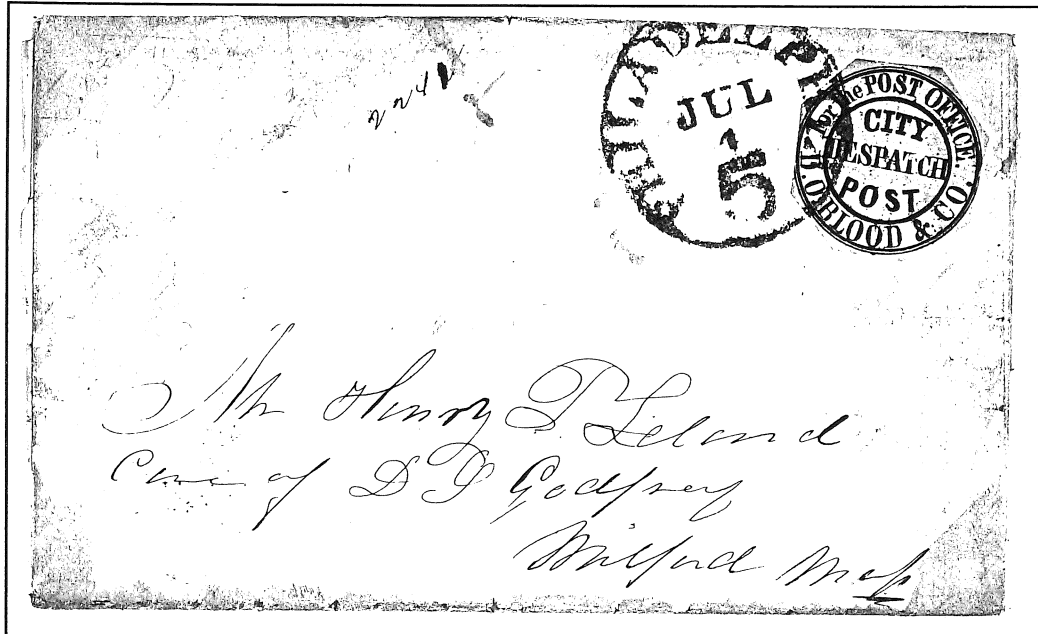 PHILADELPH
JUL
1
5
For the POST OFFICE.
CITY
DESPATCH
POST
D. O. BLOOD & CO.
Mr Henry P. Leland
Care of D S Godfrey
Milford Mass